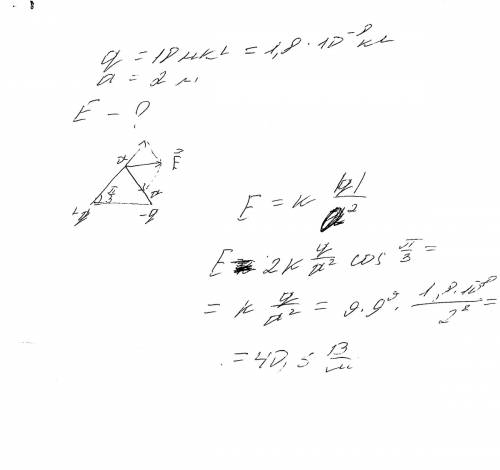 q = 18 мкКл = 1,8 · 10⁻⁸ Кл
a = 2 м
E – ?
a E⃗
π/3 a
+q -q
E = k |q|/a²
E = 2k q/a² cos π/3 =
= k q/a² = 9 · 9⁹ · 1,8 · 10⁻⁸/2² =
= 40,5 В/м